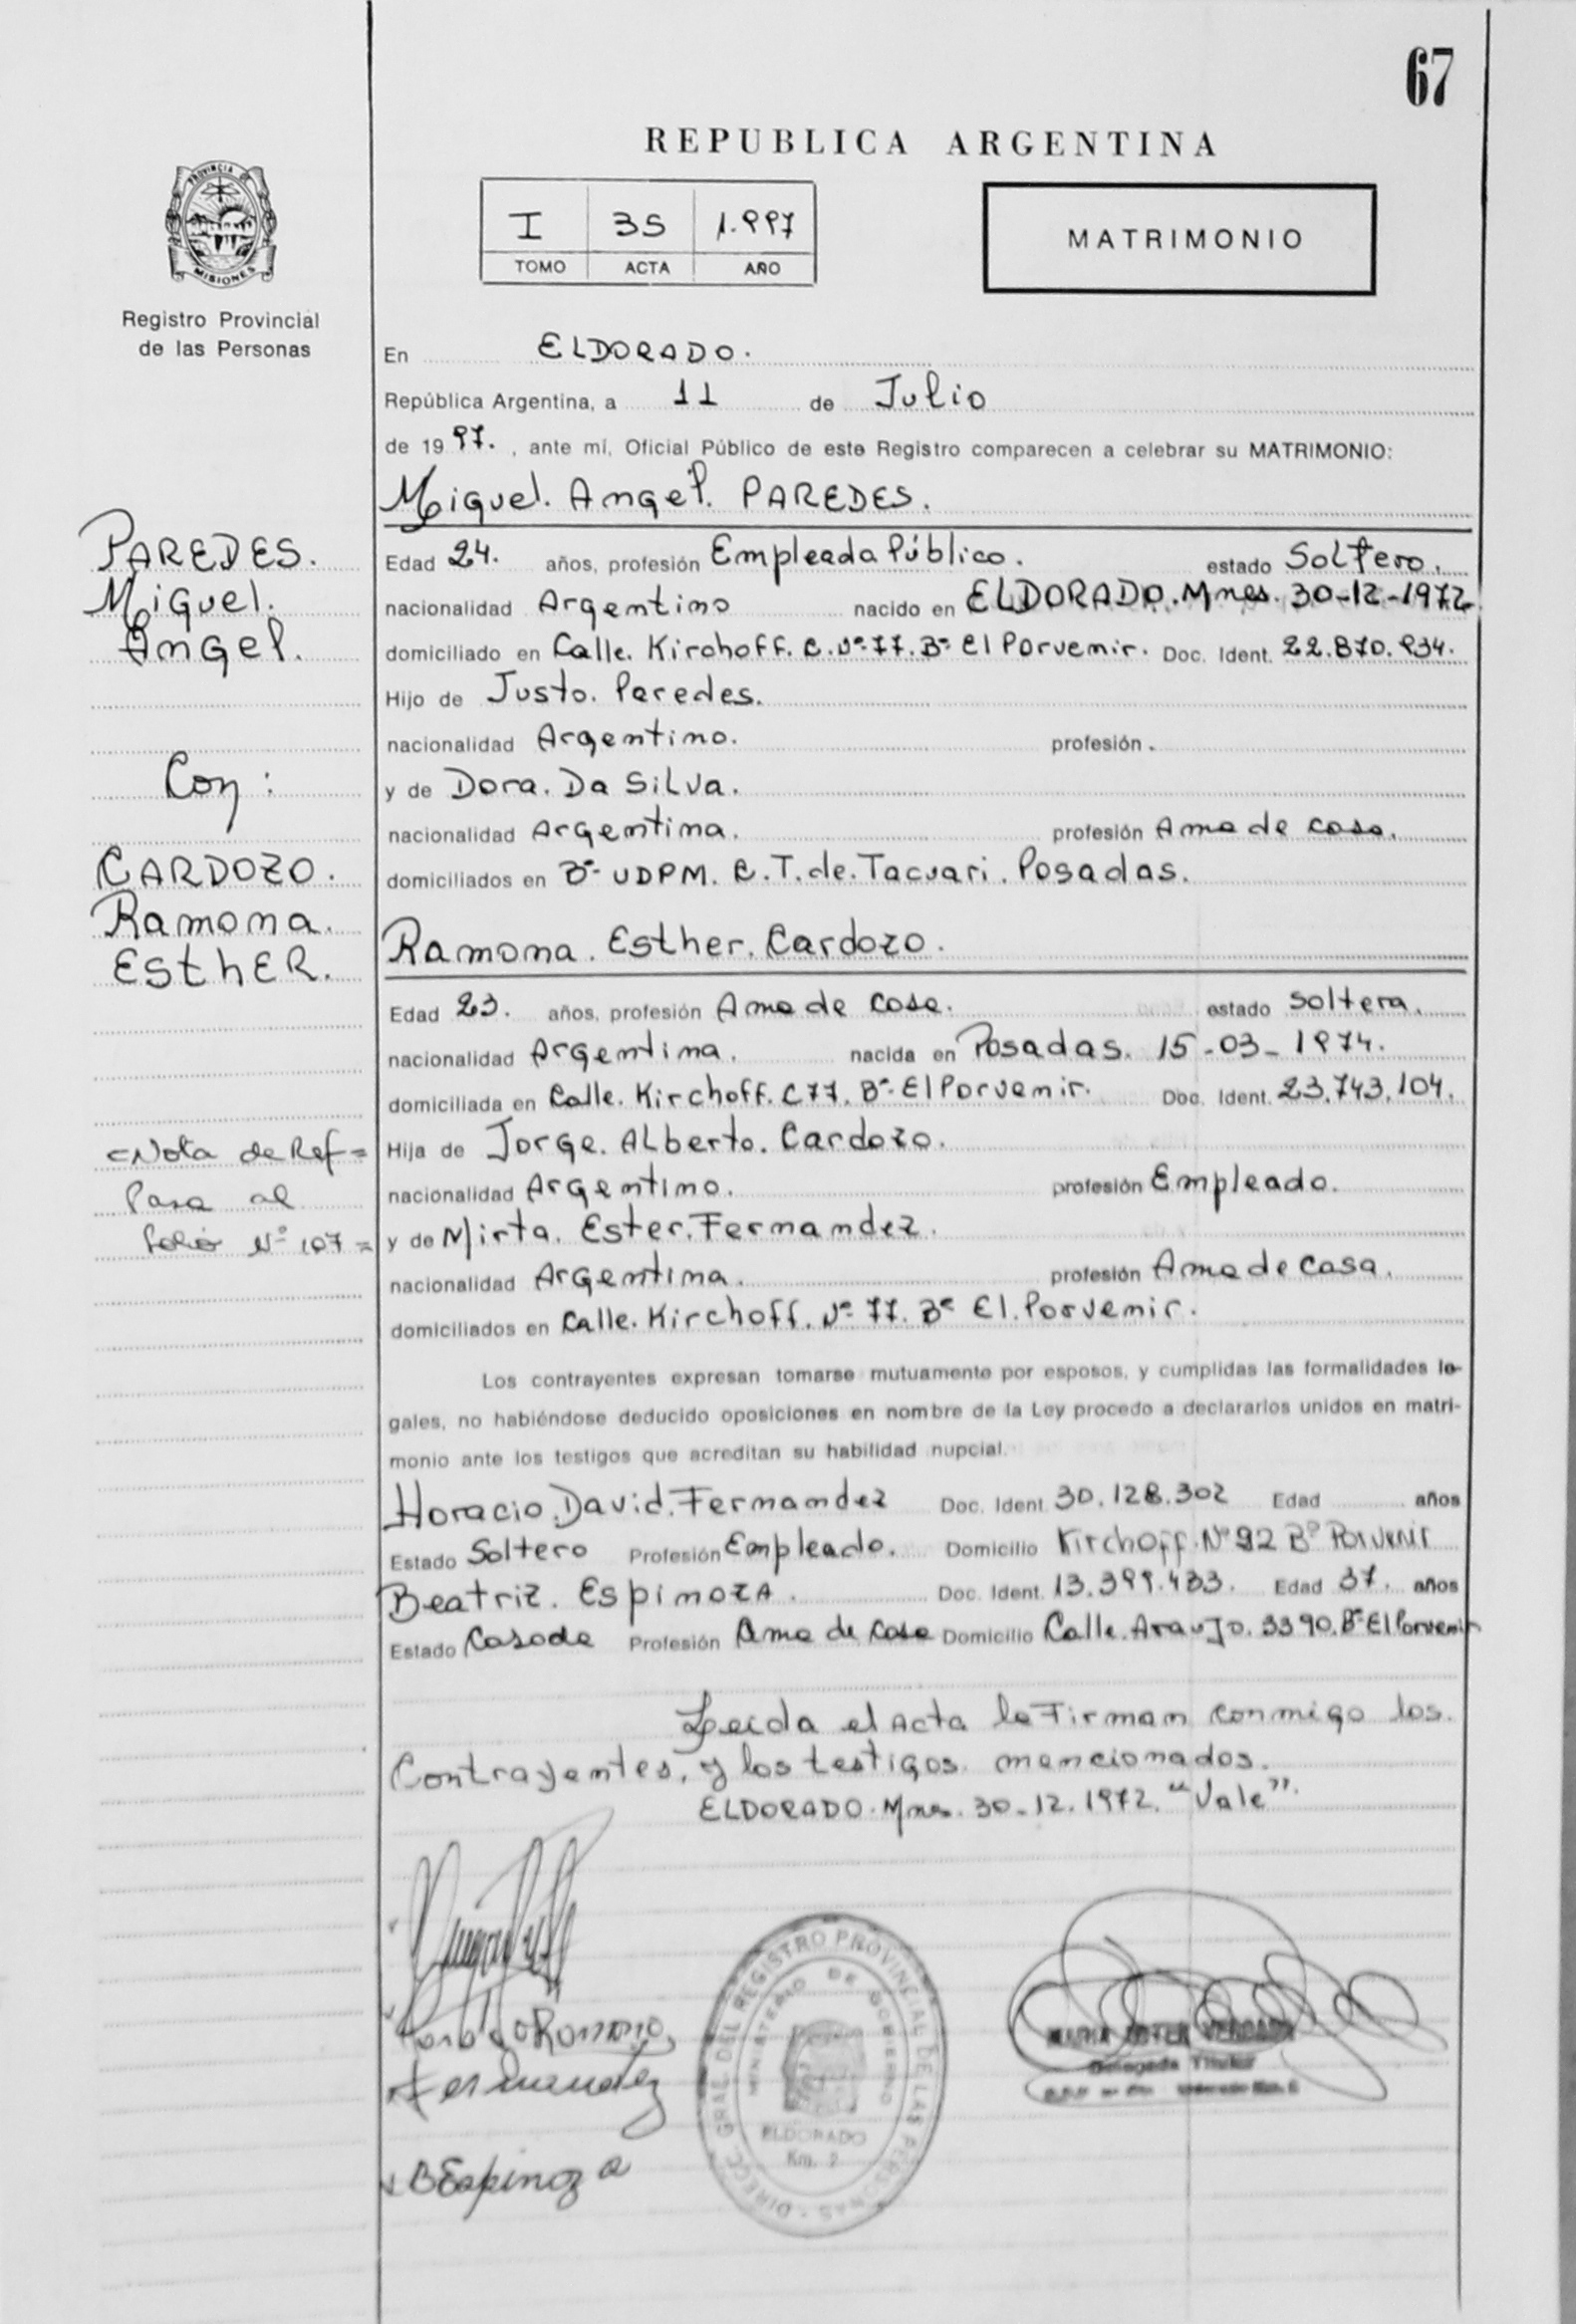 67
REPUBLICA ARGENTINA
PROVINCIA DE
MISIONES
Registro Provincial
de las Personas
I 35 1.997
TOMO ACTA AÑO
MATRIMONIO
En ELDORADO.
República Argentina, a 11 de Julio
de 19 97. , ante mí, Oficial Público de este Registro comparecen a celebrar su MATRIMONIO:
Miguel. Angel. PAREDES.
PAREDES.
Miguel.
Angel.
Con :
CARDOZO.
Ramona.
EsthER.
Edad 24. años, profesión Empleada Público. estado Soltero.
nacionalidad Argentino nacido en ELDORADO. Mnes. 30-12-1972
domiciliado en Calle. Kirchoff. C. Nº 77. Bº El Porvenir. Doc. Ident. 22.870.934.
Hijo de Justo. Paredes.
nacionalidad Argentino. profesión .
y de Dora. Da Silva.
nacionalidad Argentina. profesión Ama de casa.
domiciliados en Bº UDPM. C. T. de. Tacuari. Posadas.
Ramona. Esther. Cardozo.
Edad 23. años, profesión Ama de casa. estado soltera.
nacionalidad Argentina. nacida en Posadas. 15-03-1974.
domiciliada en Calle. Kirchoff. C 77. Bº El Porvenir. Doc. Ident. 23.743.104.
Hija de Jorge. Alberto. Cardozo.
nacionalidad Argentino. profesión Empleado.
y de Mirta. Ester. Fernandez.
nacionalidad Argentina. profesión Ama de Casa.
domiciliados en Calle. Kirchoff. Nº 77. Bº El. Porvenir.
=Nota de Ref=
Pasa al
folio Nº 107=
Los contrayentes expresan tomarse mutuamente por esposos, y cumplidas las formalidades le-
gales, no habiéndose deducido oposiciones en nombre de la Ley procedo a declararlos unidos en matri-
monio ante los testigos que acreditan su habilidad nupcial.
Horacio. David. Fernandez Doc. Ident. 30.128.302 Edad años
Estado Soltero Profesión Empleado. Domicilio Kirchoff. Nº 92 Bº Porvenir
Beatriz. Espinoza. Doc. Ident. 13.399.433. Edad 37. años
Estado Casada Profesión Ama de casa Domicilio Calle. Araujo. 3390. Bº El Porvenir
Leida el Acta la Firman conmigo los.
Contrayentes, y los testigos. mencionados.
ELDORADO. Mnes. 30-12.1972. "Vale".
Fernandez
B Espinoza
DIREC. GRAL. DEL REGISTRO PROVINCIAL DE LAS PERSONAS
MINISTERIO DE GOBIERNO
ELDORADO
Km. 2
Delegada Titular